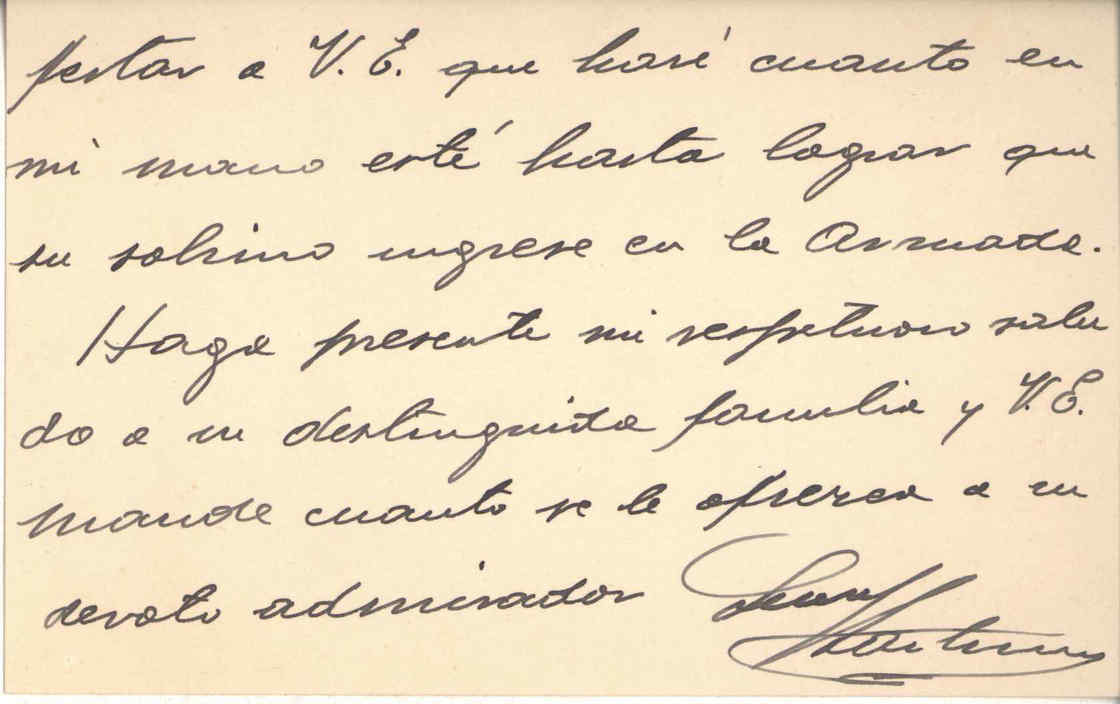 festar a V. E. que haré cuanto en
mi mano esté hasta lograr que
su sobrino ingrese en la Armada.
Haga presente mi respetuoso salu
do a su distinguida familia y V. E.
mande cuanto se le ofrezca a su
devoto admirador